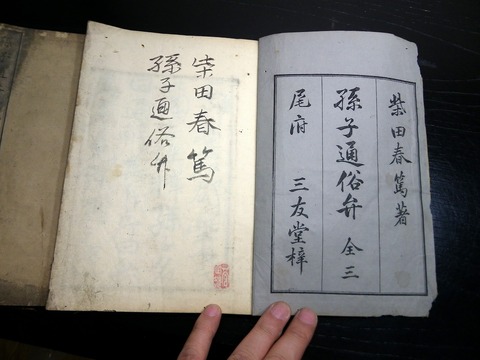 柴田春篤著
孫子通俗弁 全三
尾府 三友堂梓
柴田春篤
孫子通俗弁